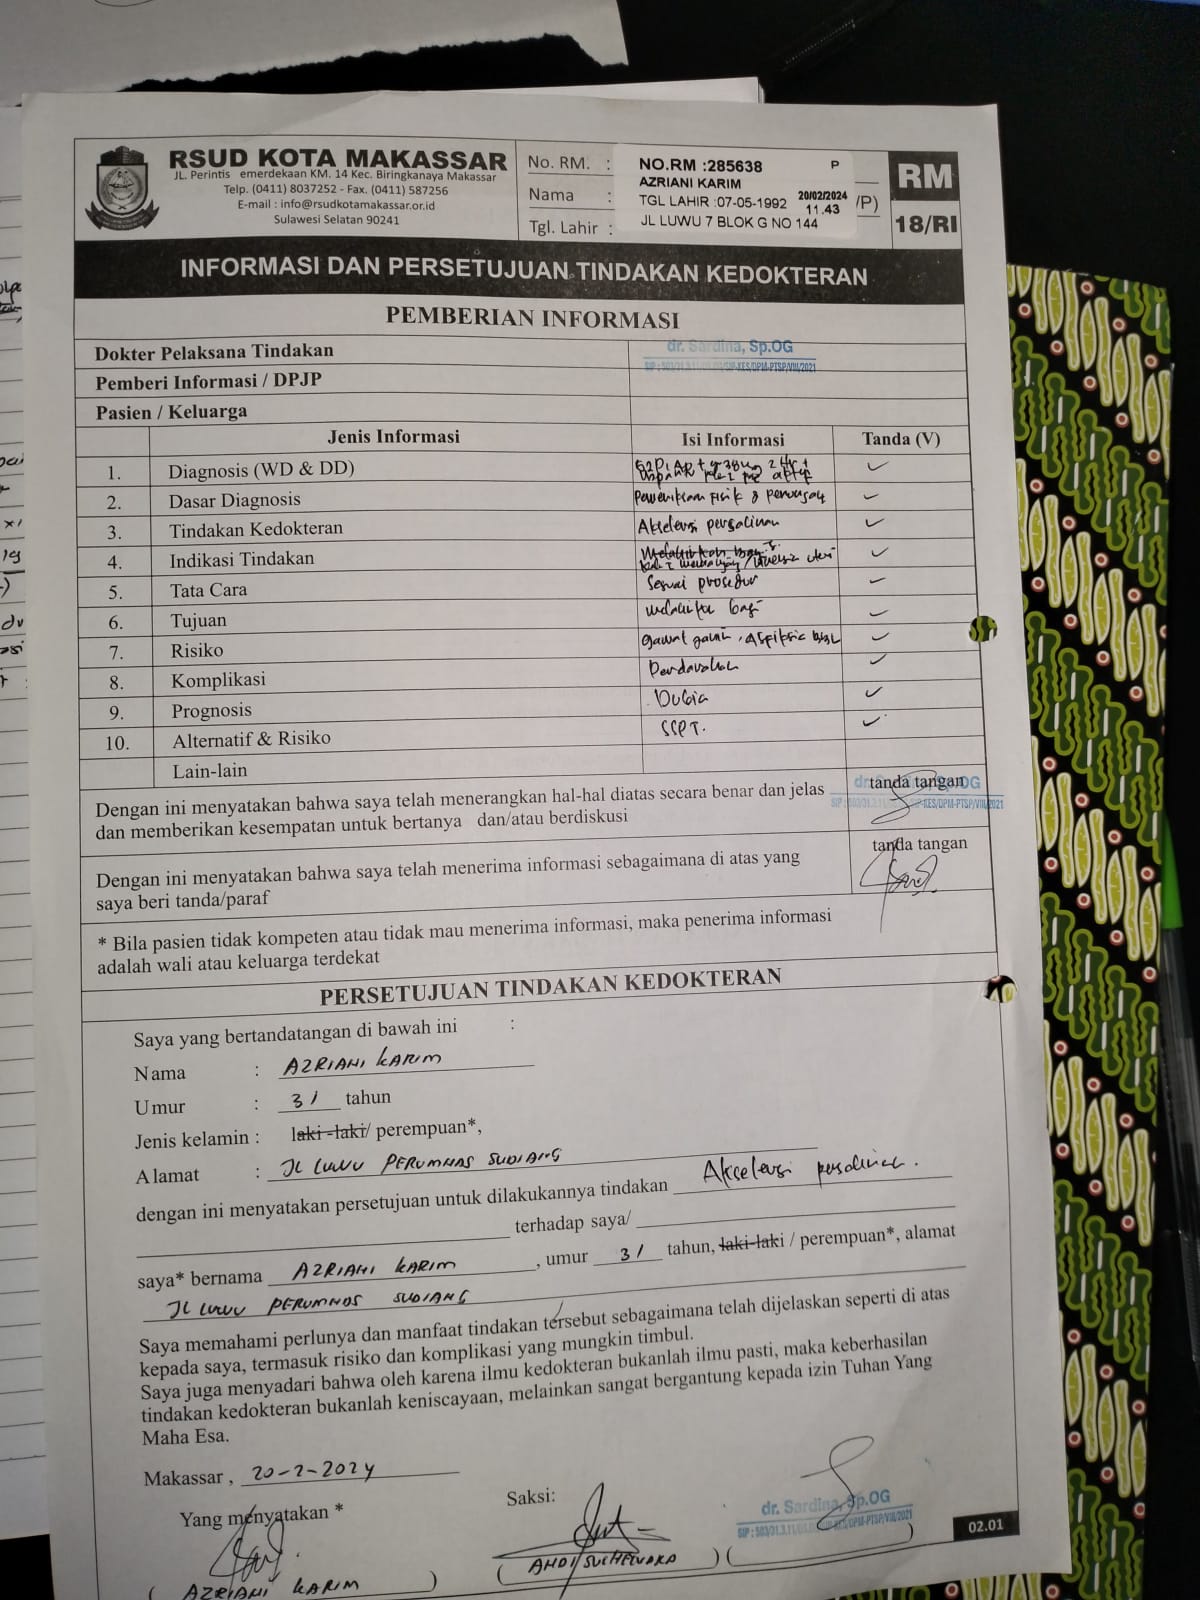 RSUD KOTA MAKASSAR
JL. Perintis emerdekaan KM. 14 Kec. Biringkanaya Makassar
Telp. (0411) 8037252 - Fax. (0411) 587256
E-mail : info@rsudkotamakassar.or.id
Sulawesi Selatan 90241
No. RM. :
Nama :
Tgl. Lahir :
NO.RM :285638 P
AZRIANI KARIM
TGL LAHIR :07-05-1992 20/02/2024 11.43
JL LUWU 7 BLOK G NO 144
/P)
RM
18/RI
INFORMASI DAN PERSETUJUAN TINDAKAN KEDOKTERAN
PEMBERIAN INFORMASI
Dokter Pelaksana Tindakan dr. Sardina, Sp.OG
Pemberi Informasi / DPJP
Pasien / Keluarga
Jenis Informasi Isi Informasi Tanda (V)
1. Diagnosis (WD & DD) ✓
2. Dasar Diagnosis Pemeriksaan Fisik & penunjang ✓
3. Tindakan Kedokteran Akselerasi persalinan ✓
4. Indikasi Tindakan ✓
5. Tata Cara Sesuai prosedur ✓
6. Tujuan ✓
7. Risiko gawat janin, Asfiksia ✓
8. Komplikasi Perdarahan ✓
9. Prognosis Dubia ✓
10. Alternatif & Risiko ✓
Lain-lain
Dengan ini menyatakan bahwa saya telah menerangkan hal-hal diatas secara benar dan jelas
dan memberikan kesempatan untuk bertanya dan/atau berdiskusi
tanda tangan
Dengan ini menyatakan bahwa saya telah menerima informasi sebagaimana di atas yang
saya beri tanda/paraf
tanda tangan
* Bila pasien tidak kompeten atau tidak mau menerima informasi, maka penerima informasi
adalah wali atau keluarga terdekat
PERSETUJUAN TINDAKAN KEDOKTERAN
Saya yang bertandatangan di bawah ini :
Nama : AZRIANI KARIM
Umur : 31 tahun
Jenis kelamin : laki -laki/ perempuan*,
Alamat : JL LUWU PERUMNAS SUDIANG
dengan ini menyatakan persetujuan untuk dilakukannya tindakan Akselerasi persalinan.
terhadap saya/
saya* bernama AZRIANI KARIM, umur 31 tahun, laki-laki / perempuan*, alamat
JL LUWU PERUMNAS SUDIANG
Saya memahami perlunya dan manfaat tindakan tersebut sebagaimana telah dijelaskan seperti di atas
kepada saya, termasuk risiko dan komplikasi yang mungkin timbul.
Saya juga menyadari bahwa oleh karena ilmu kedokteran bukanlah ilmu pasti, maka keberhasilan
tindakan kedokteran bukanlah keniscayaan, melainkan sangat bergantung kepada izin Tuhan Yang
Maha Esa.
Makassar , 20-2-2024
Yang menyatakan * Saksi:
dr. Sardina, Sp.OG
( AZRIANI KARIM ) ( ANDI ) ( )
02.01